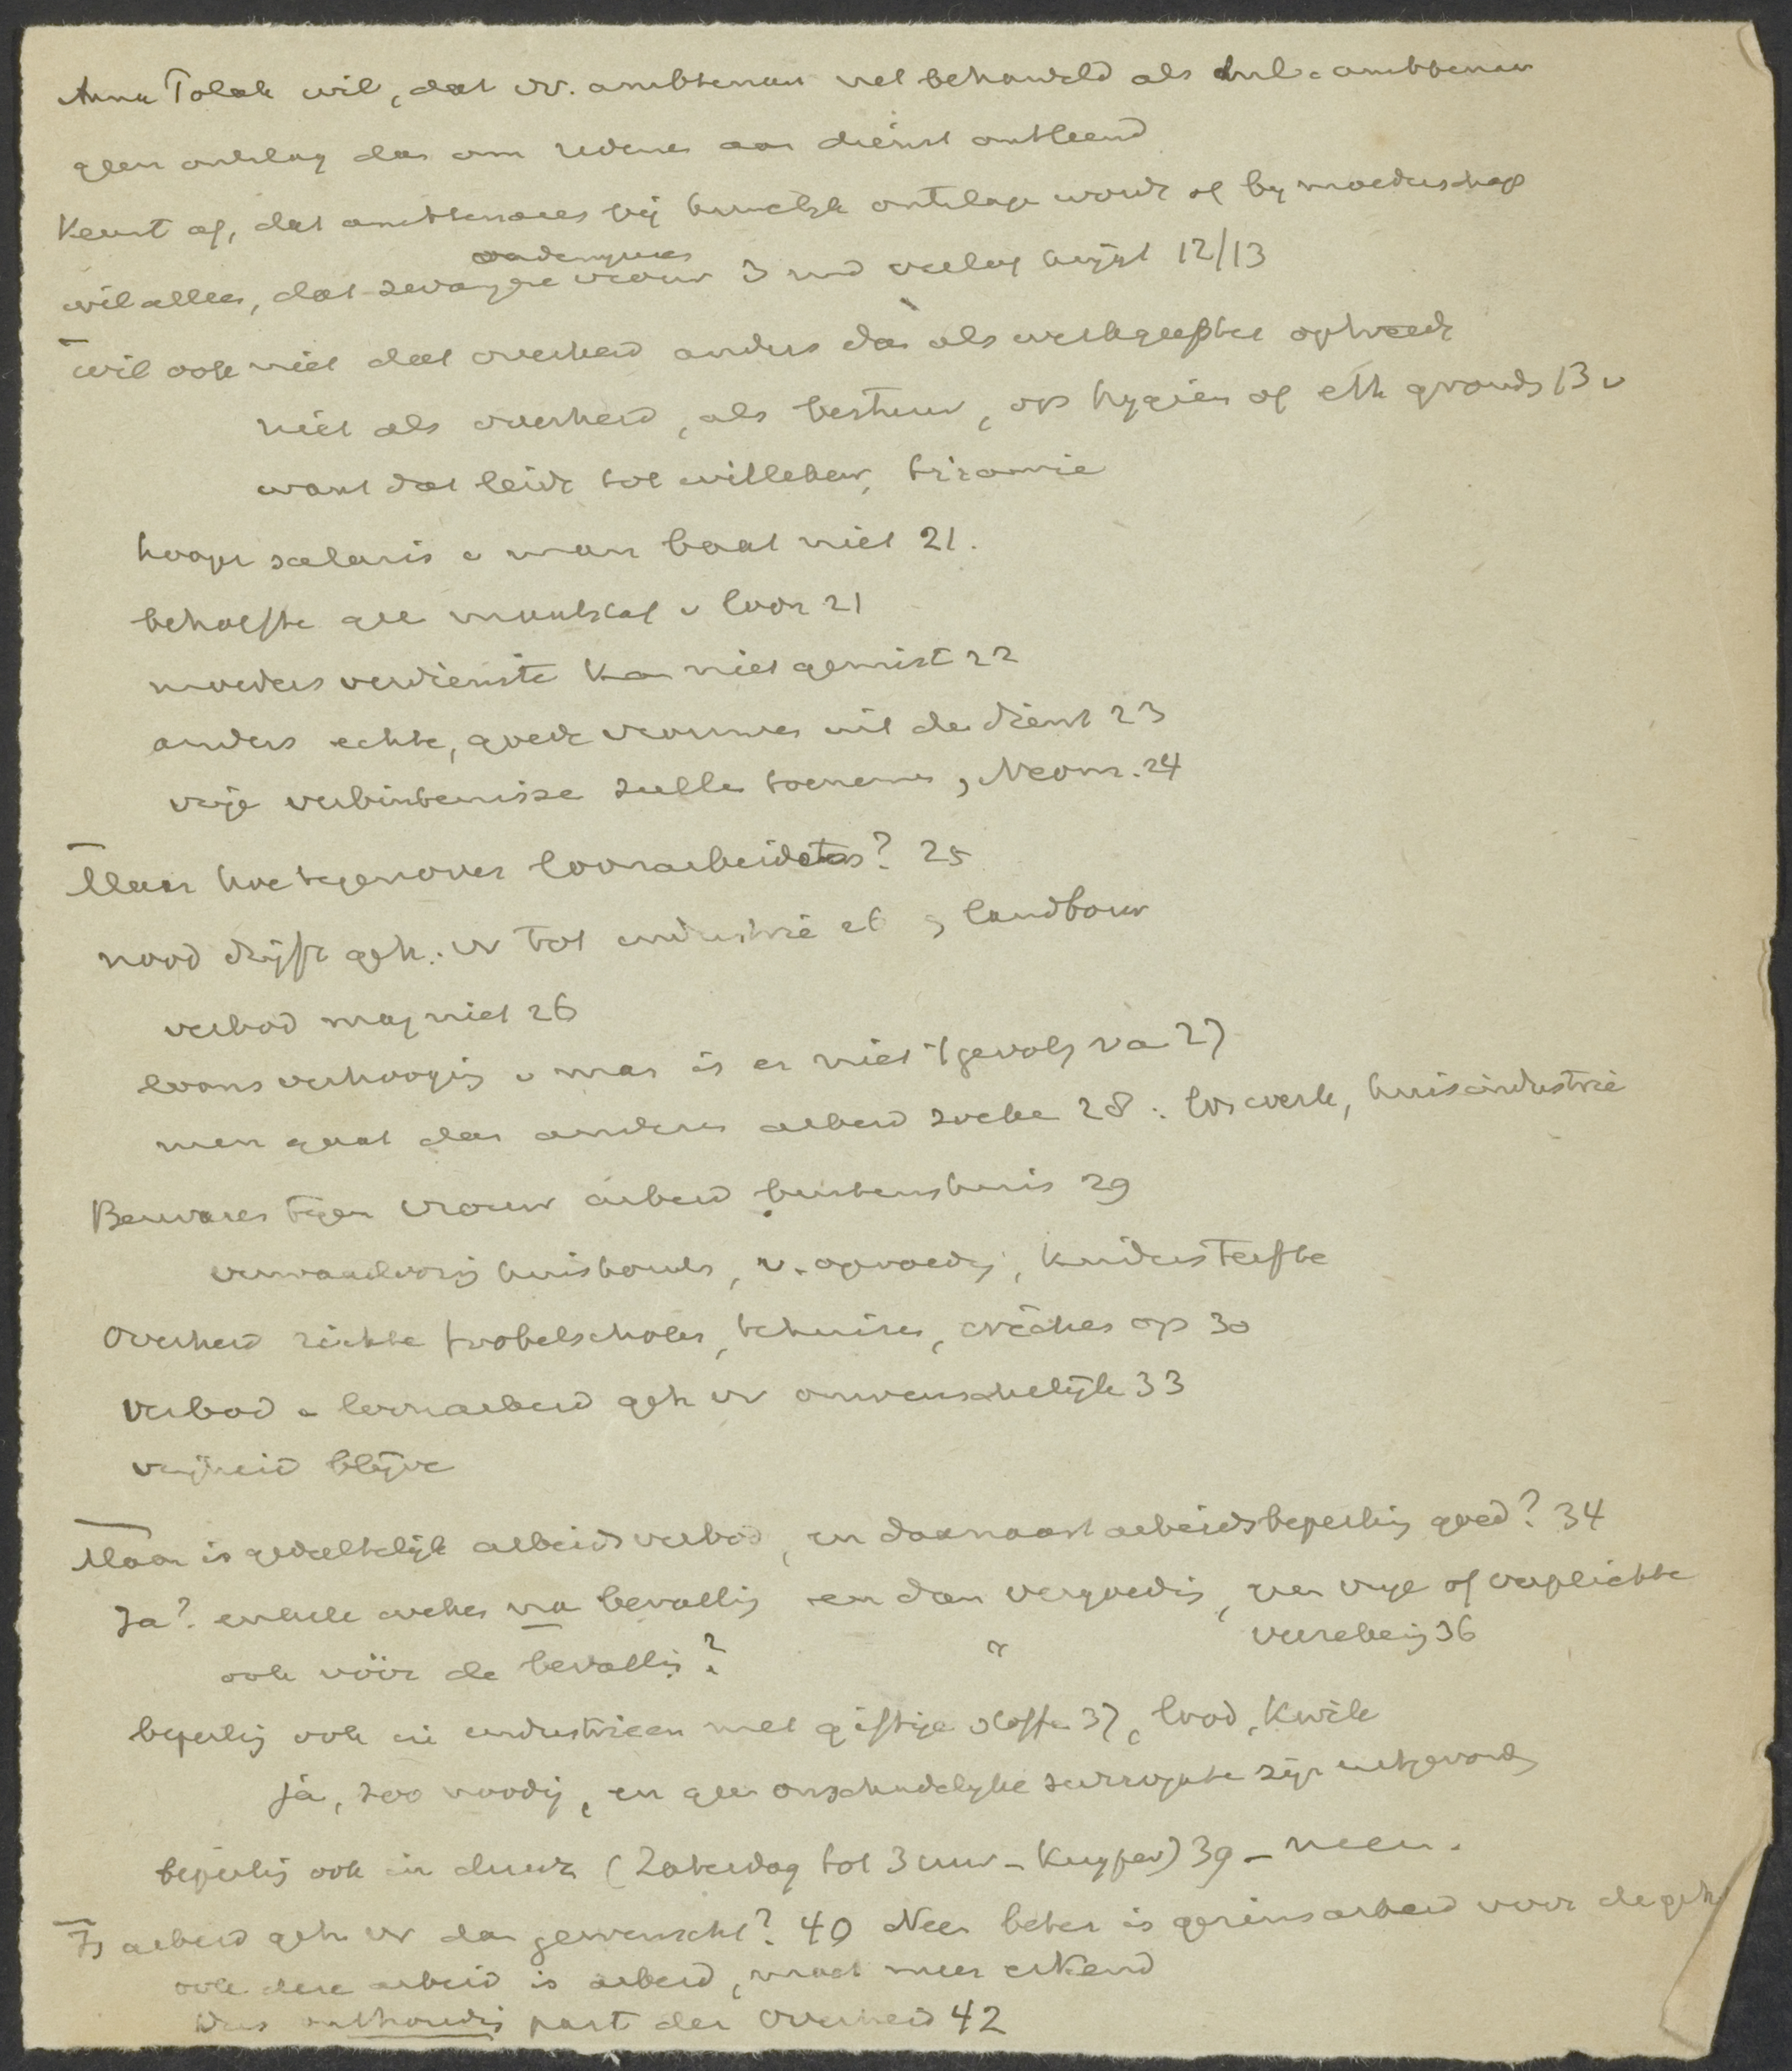 Anna Polak wil, dat vr. ambtenaar wel behandeld als ambtenaar
geen ontslag dan om redenen aan dienst ontleend
Keurt af, dat ambtenares bij huwelijk ontslage wordt of bij moederschap
onderwijzeres
wil alleen, dat zwangere vrouw 3 md verlof krijgt 12/13
wil ook niet dat overheid anders dan als werkgeefster optreedt
niet als overheid, als bestuur, op hygien of eth gronds 13 v
want dat leidt tot willekeur, tirannie
hooger salaris v man baat niet 21.
behoefte gee maatstaf v loon 21
moeders verdienste ka niet gemist 22
anders echte, goede vrouwen uit de dienst 23
vrije verbintenisse zulle toenemen, Neom. 24
Maar hoe tegenover loonarbeidsters? 25
nood drijft geh. vr tot industrie 26, landbouw
verbod mag niet 26
loonsverhooging v man is er niet 't gevolg va 27
men gaat dan anderen arbeid zoeke 28: los werk, huisindustrie
Bezwaren tegen vrouw arbeid buitenshuis 29
verwaarloozing huishoud, v. opvoedg, kindersterfte
Overheid richte frobelscholen, tehuizen, crèches op 30
Verbod v loonarbeid geh vr onwenschelijk 33
vrijheid blijve
Maar is gedeeltelijk arbeidsverbod, en daarnaast arbeidsbeperking goed? 34
Ja? enkele weken na bevalling en dan vergoeding, van vrije of verplichte
verzekerg 36
ook vóór de bevalling? "
beperkig ook in industrieen met giftige stoffe 37, lood, kwik
ja, zoo noodig, en geen onschadelijke surrogate zijn uitgevonden
beperkig ook in duur (Zaterdag tot 3 uur - Kuyper) 39 - neen.
Is arbeid geh vr dan gewenscht? 40 Neen beter is gezinsarbeid voor de geh
ook deze arbeid is arbeid, moet meer erkend
Dus onthoudig past der Overheid 42